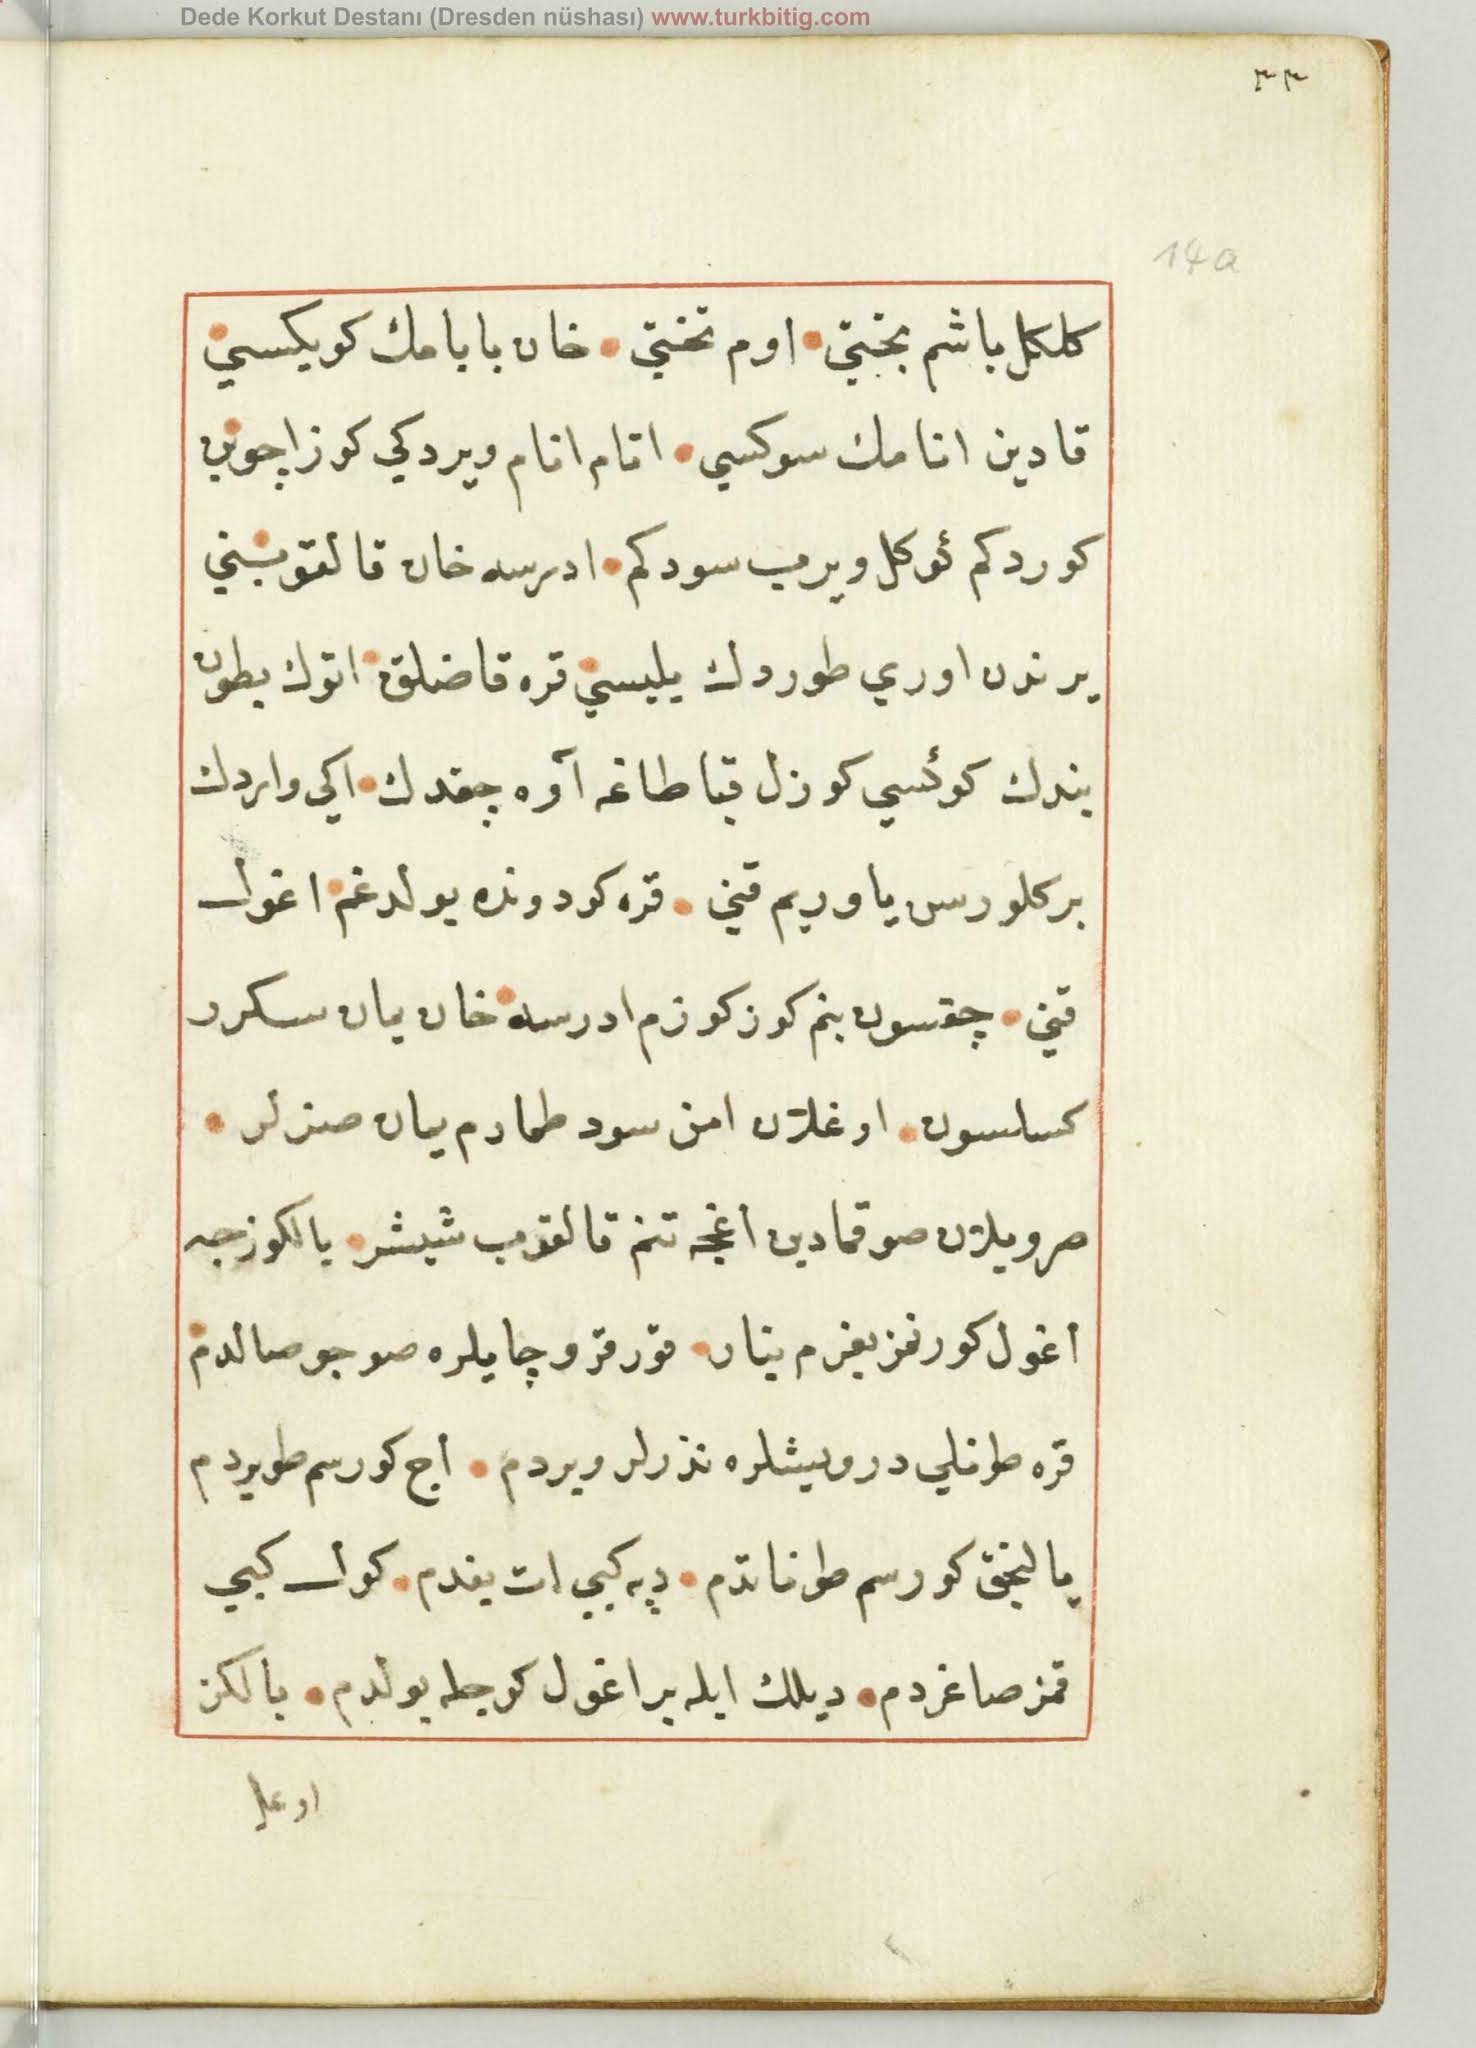 Dede Korkut Destanı (Dresden nüshası) www.turkbitig.com
٢٣
14a
كلكل باشم بختی اوم تختی خان بابامك كويكسی
قادين انامك سوكسی اتام انام ويردكی كوز اچوبن
كوردكم كوكل ويرب سودكم ادرسه خان قالقوبنی
يرندن اوری طوردك يليسی قره قاضلق اتوك بطون
بندك كوكسی كوزل قبا طاغه آوه چقدك اكی واردك
بر كلورسن ياوريم قنی قره كودونده بولدغم اغول
قنی چقسون بنم كوز كوزم ادرسه خان يمان سكرر
كسلسون اوغلان امن سود طمارم يمان صزلر
صرو يلان صوقمادين اغجه تنم قالقوب شيشر يالكوزجه
اغول كورنمز بغرم ينار قور قرو چايلره صوجو صالدم
قره طونلی درويشلره نذرلر ويردم اج كورسم طويردم
يالنجق كورسم طوناتدم دپه كبی ات يغدم كول كبی
قمز صاغردم ديلك ايله بر اغول كوجله بولدم يالكز
اوغل